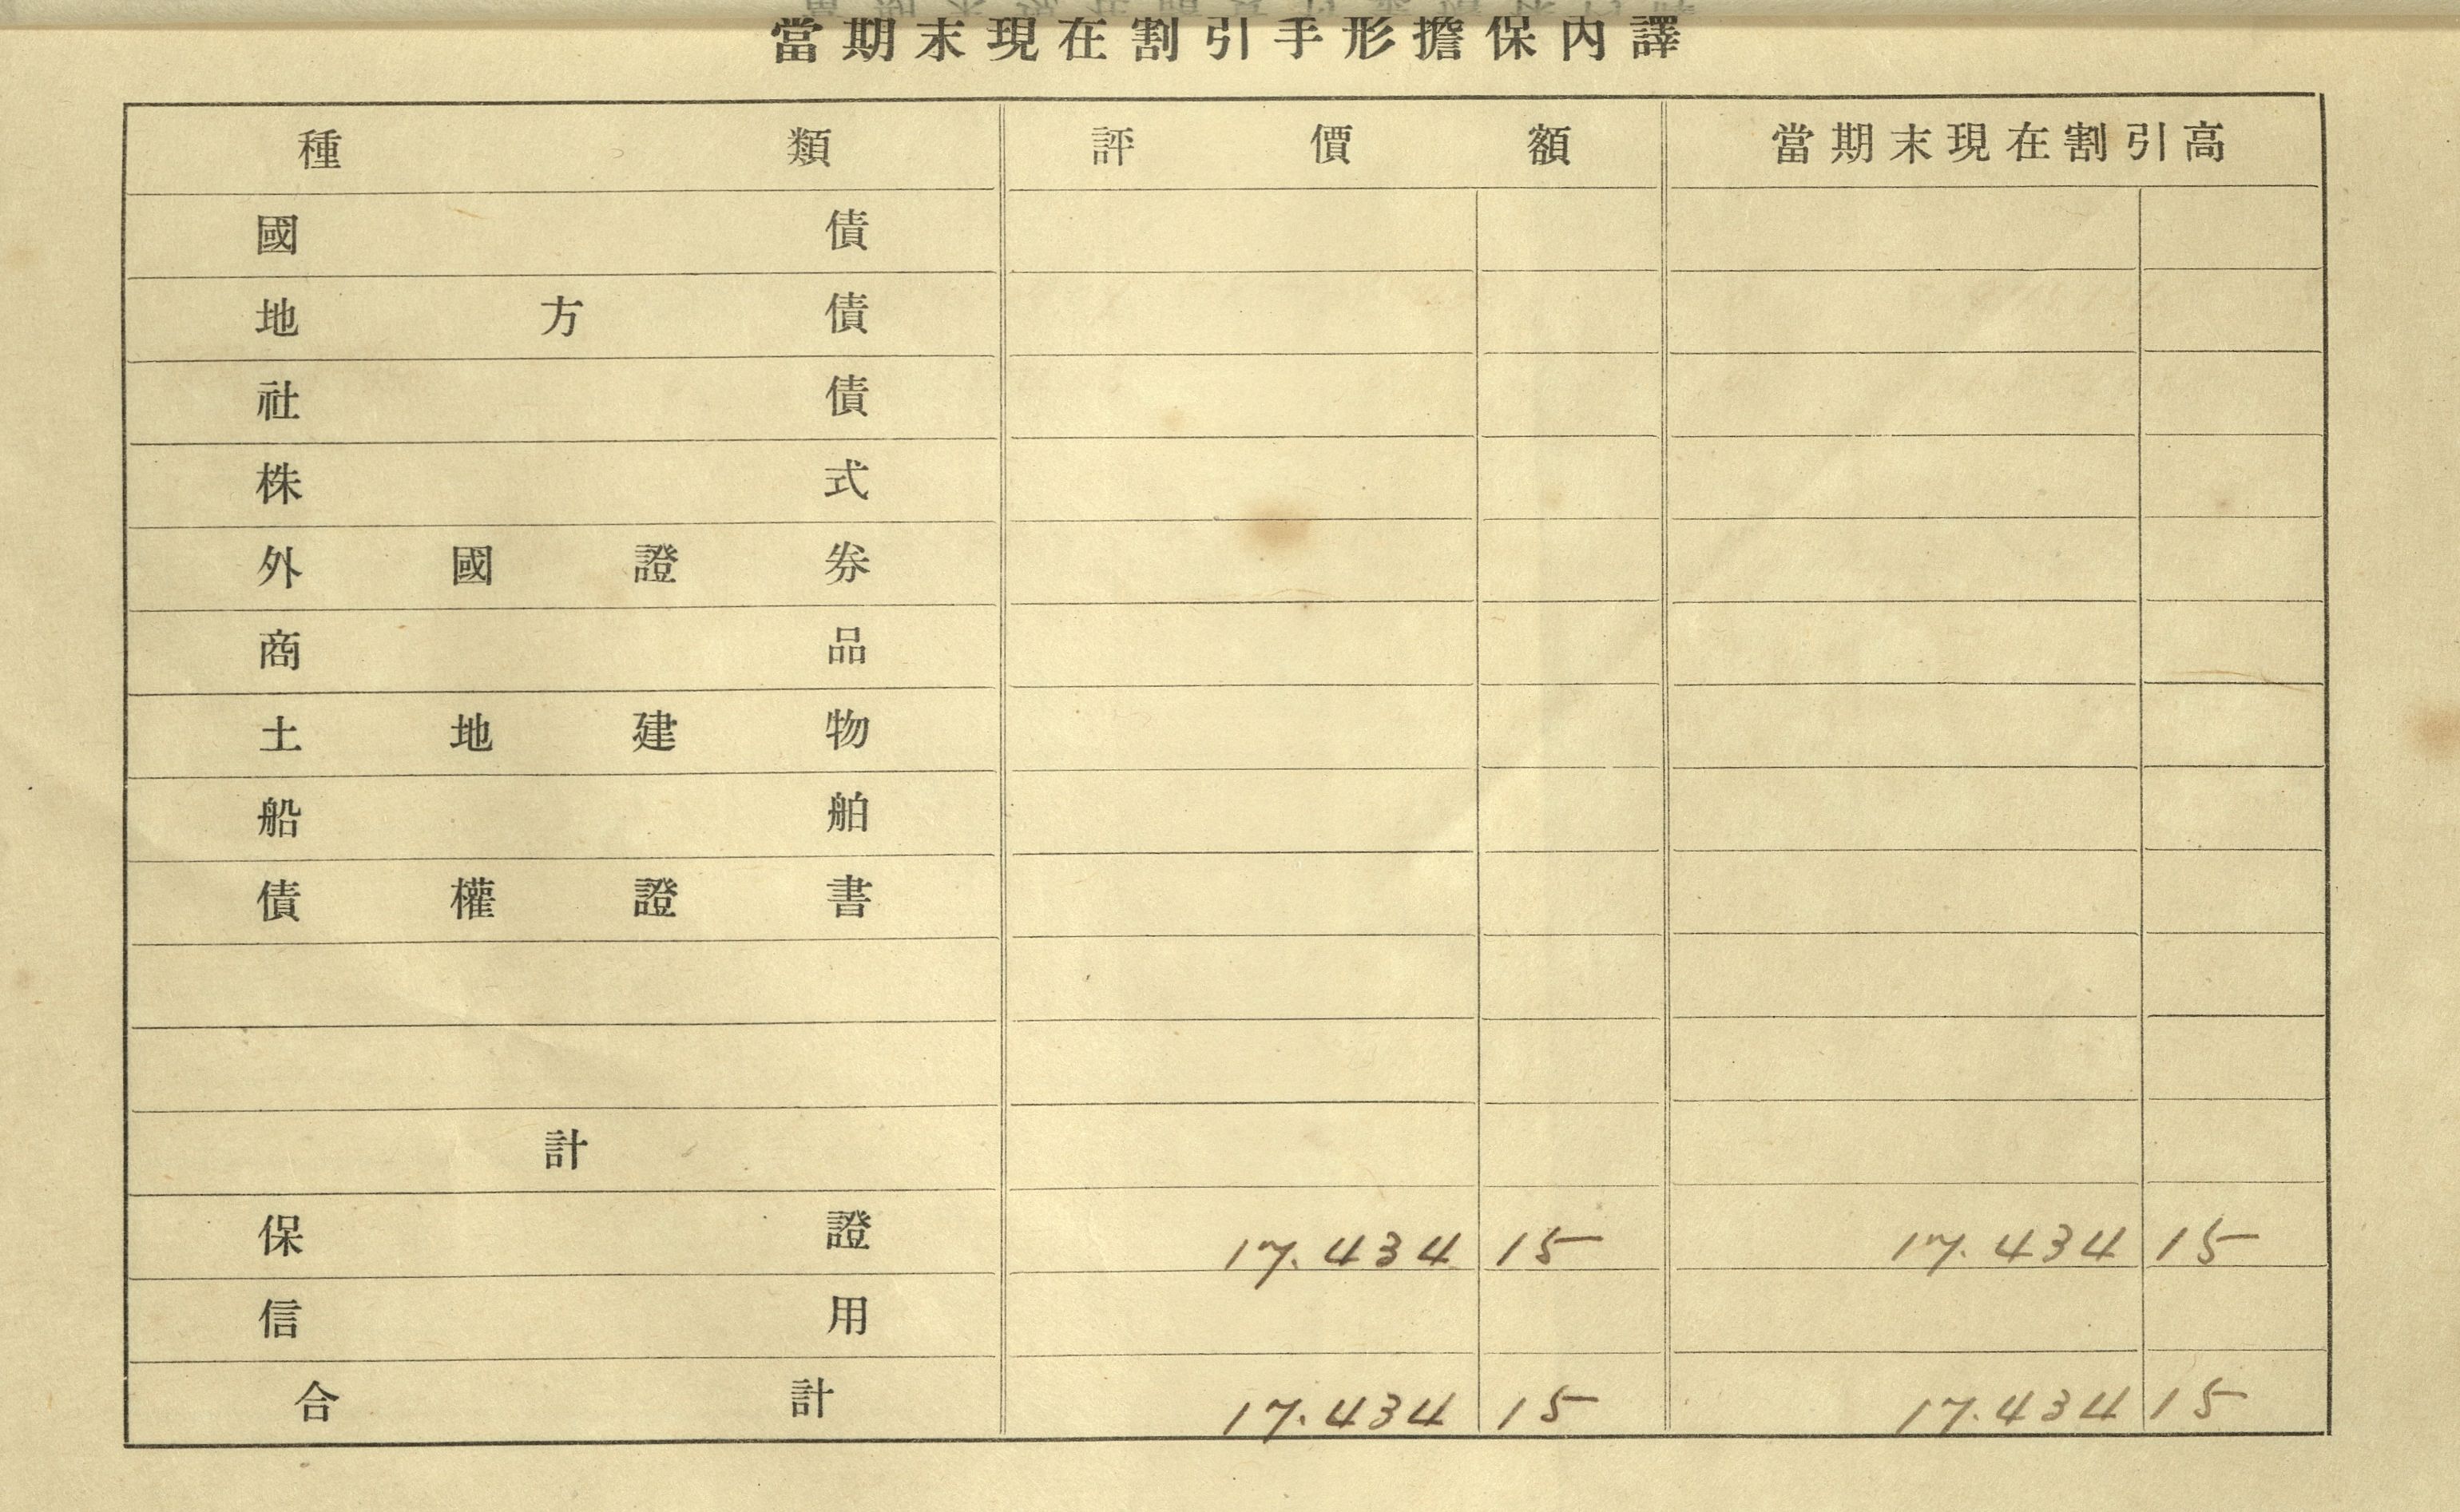 當期末現在割引手形擔保内譯
種類 評價額 當期末現在割引高
國債
地方債
社債
株式
外國證券
商品
土地建物
船舶
債權證書
計
保證 17.434 15 17.434 15
信用
合計 17.434 15 17.434 15